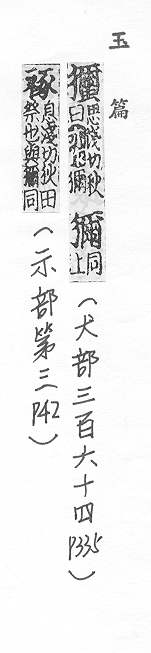 玉篇
獮 思淺切秋曰獮 同上(犬部三百六十四P335)
禒 息淺切秋田祭也與獮同(示部第三P42)